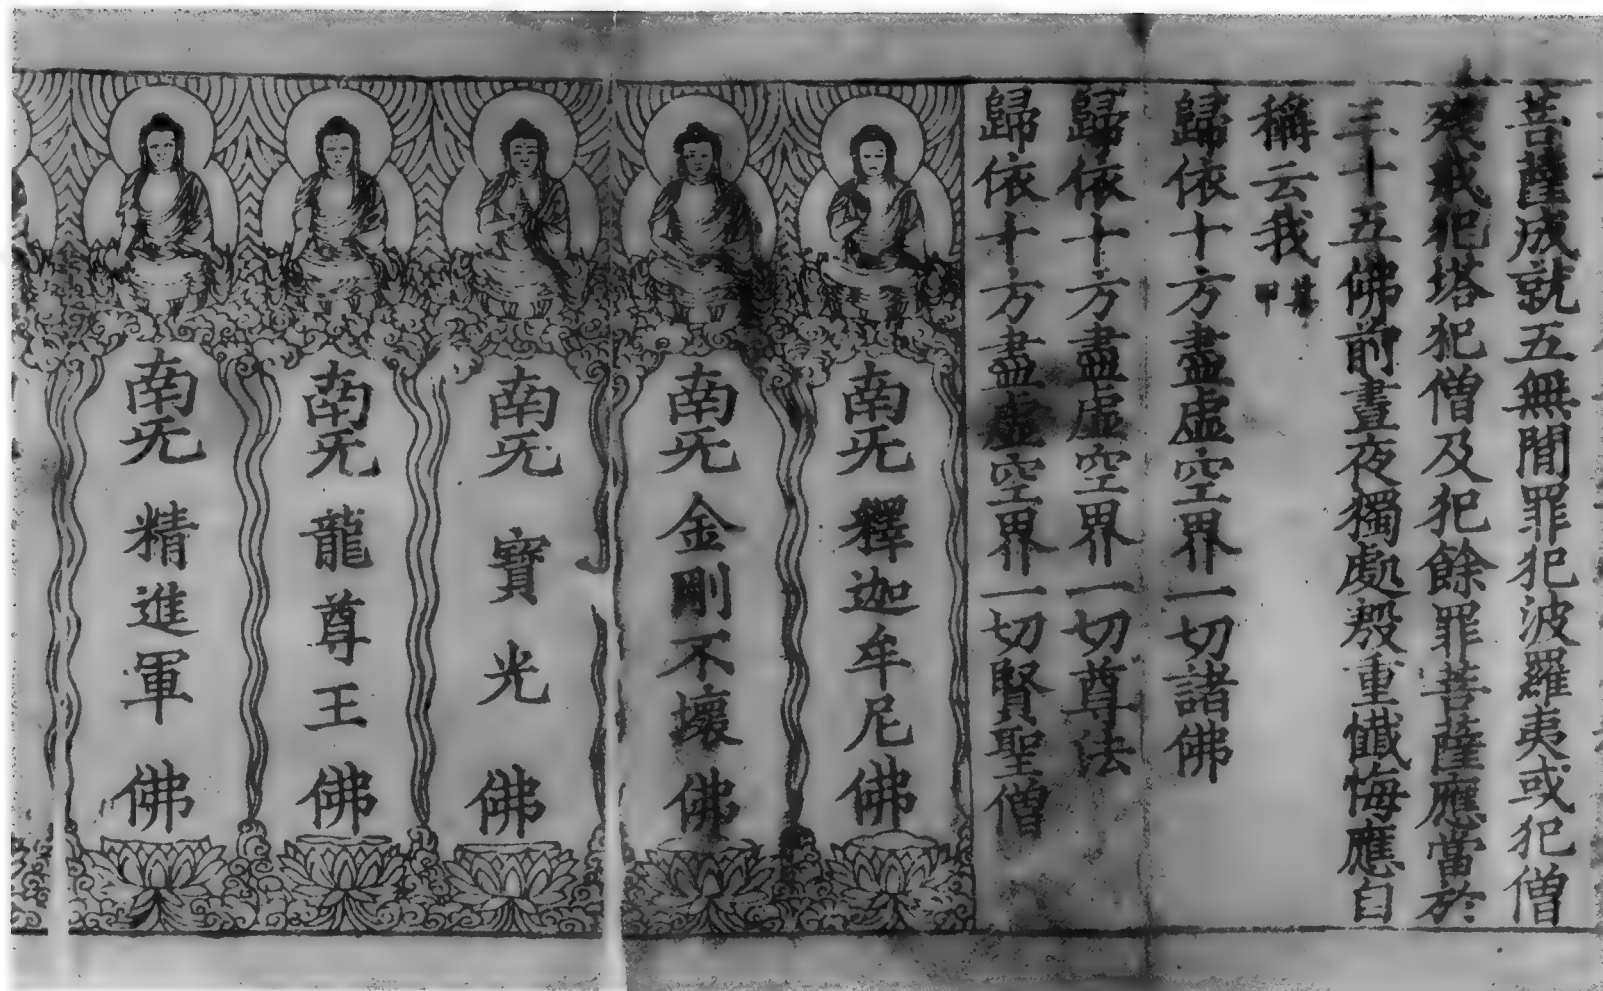 菩薩成就五無間罪犯波羅夷或犯僧
殘戒犯塔犯僧及犯餘罪菩薩應當於
三十五佛前晝夜獨處殷重懺悔應自
稱云我某甲
歸依十方盡虛空界一切諸佛
歸依十方盡虛空界一切尊法
歸依十方盡虛空界一切賢聖僧
南无釋迦牟尼佛
南无金剛不壞佛
南无寶光佛
南无龍尊王佛
南无精進軍佛